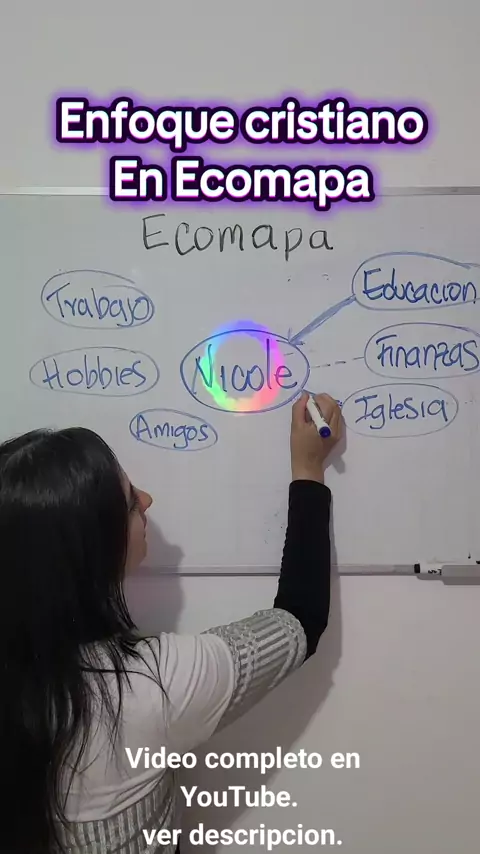 Enfoque cristiano
En Ecomapa
Ecomapa
Trabajo
Educacion
Hobbies
Nicole
Finanzas
Amigos
Iglesia
Video completo en
YouTube.
ver descripcion.